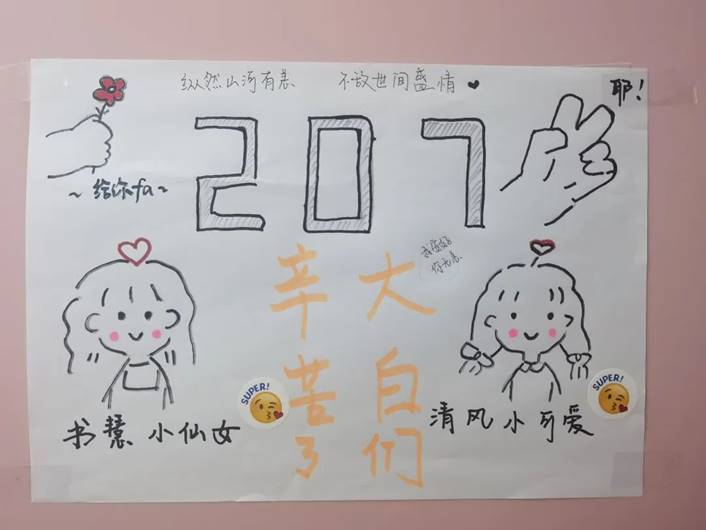 纵然山河有恙 不敌世间盛情
耶!
207
~给你fa~
我您好
你无恙
大白们
辛苦了
SUPER!
SUPER!
书慧小仙女
清风小可爱